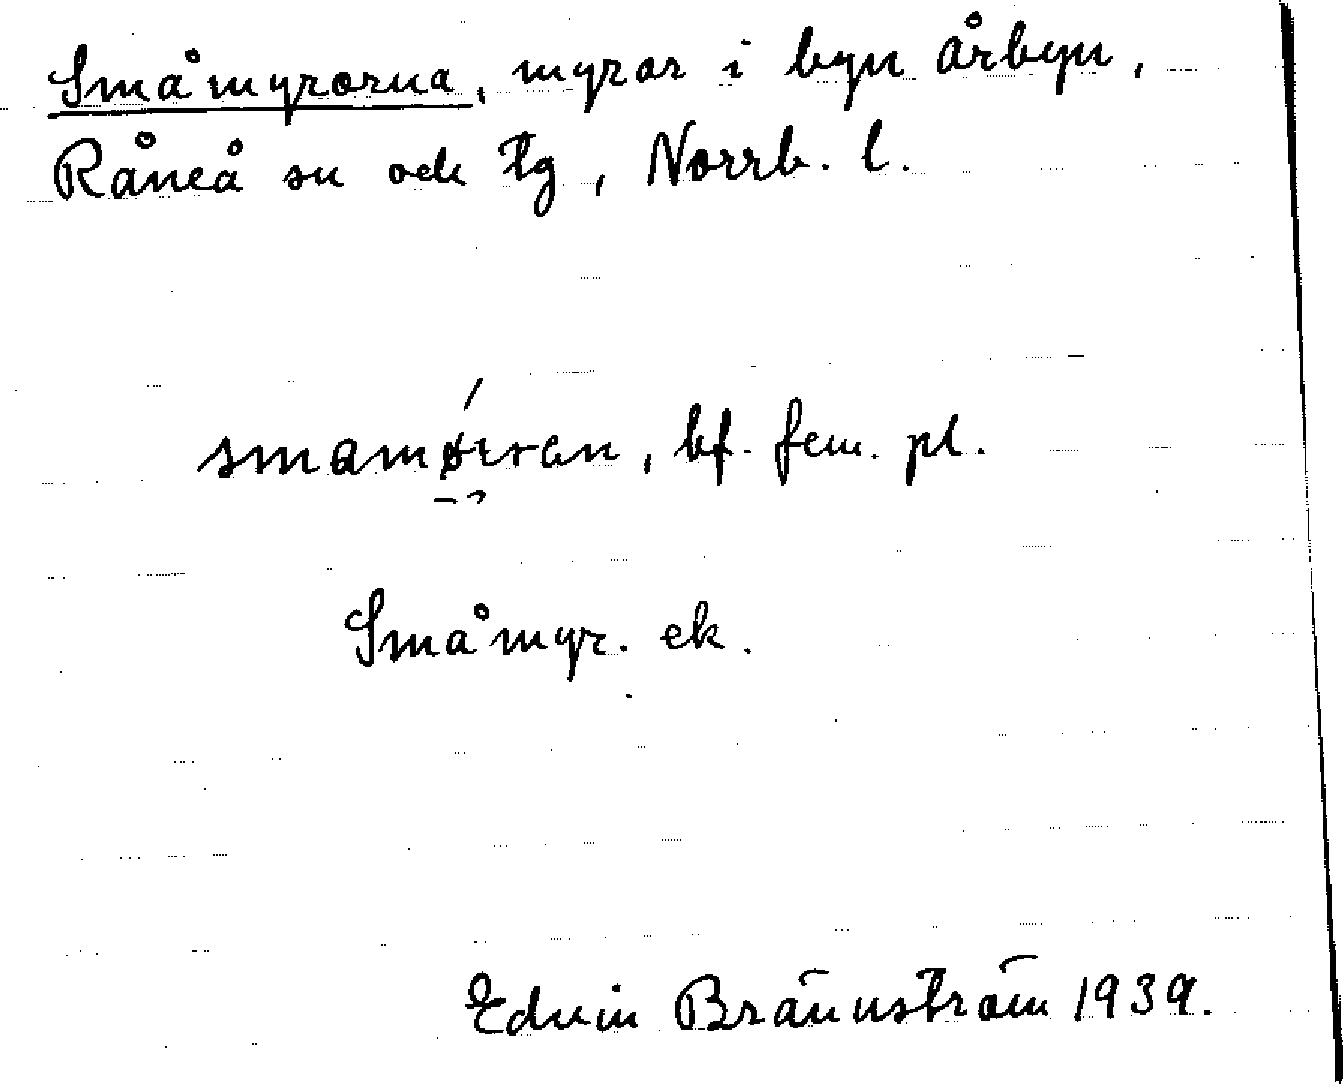 Småmyrorna, myrar i byn Årbyn,
Råneå sn och tg, Norrb. l.
bf. fem. pl.
Småmyr. ek.
Edvin Brännström 1939.